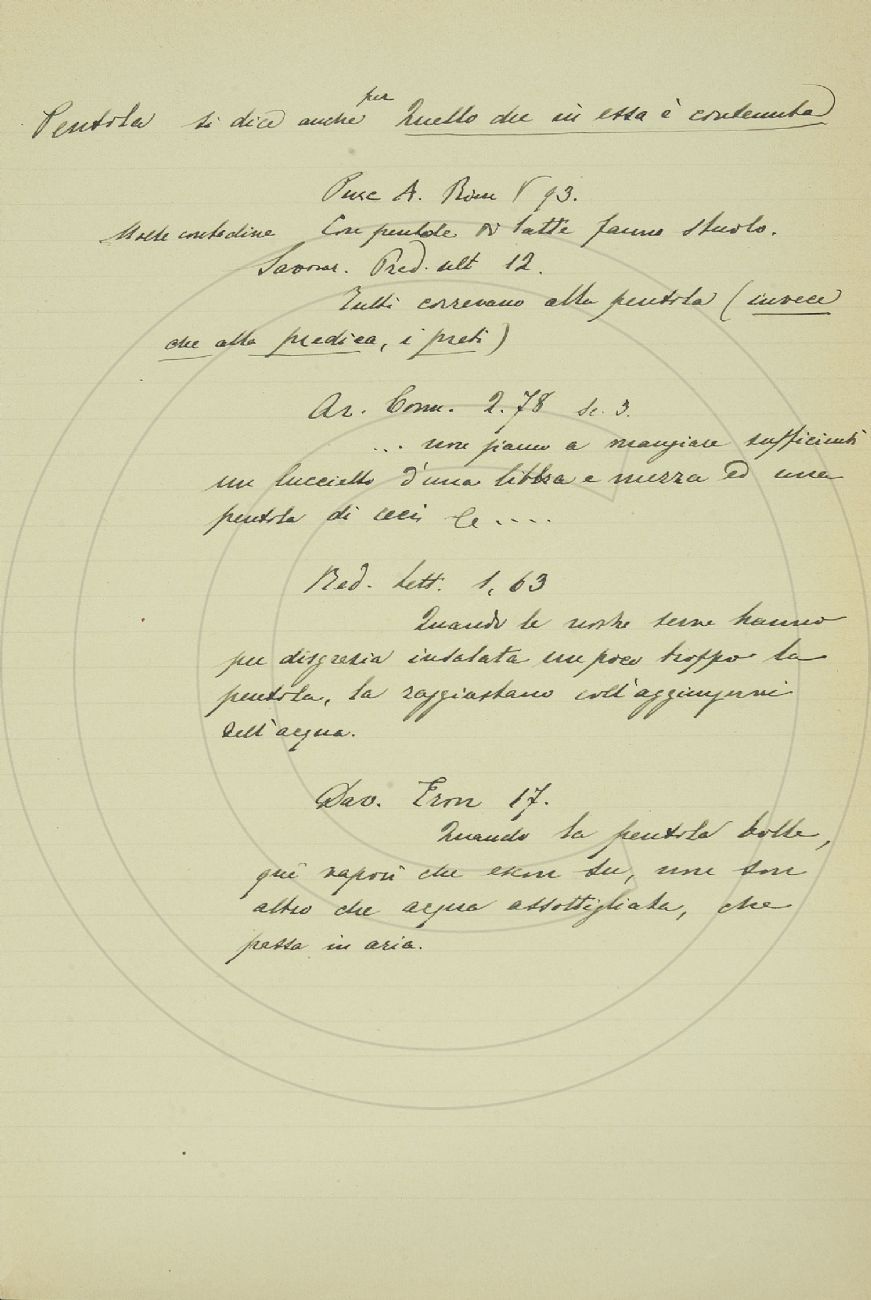 Pentola si dice anche per Quello che in essa è contenuto
Pucc A. Rim V 93.
Molte contadine Con pentole di latte fanno stuolo.
Savonar. Pred. ult 12.
Tutti correvano alla pentola (invece
che alla predica, i preti)
Ar. Comm. 2.78 Sc. 3.
... non siamo a mangiare sufficienti
un luccietto d'una libbra e mezza ed una
pentola di ceci
Red. Lett. 1, 63
Quando le nostre serve hanno
per disgrazia insalata un poco troppo la
pentola, la raggiustano coll'aggiungervi
dell'acqua.
Dav. Eron 17.
Quando la pentola bolle,
que' vapori che escon su, non son
altro che acqua assottigliata, che
passa in aria.